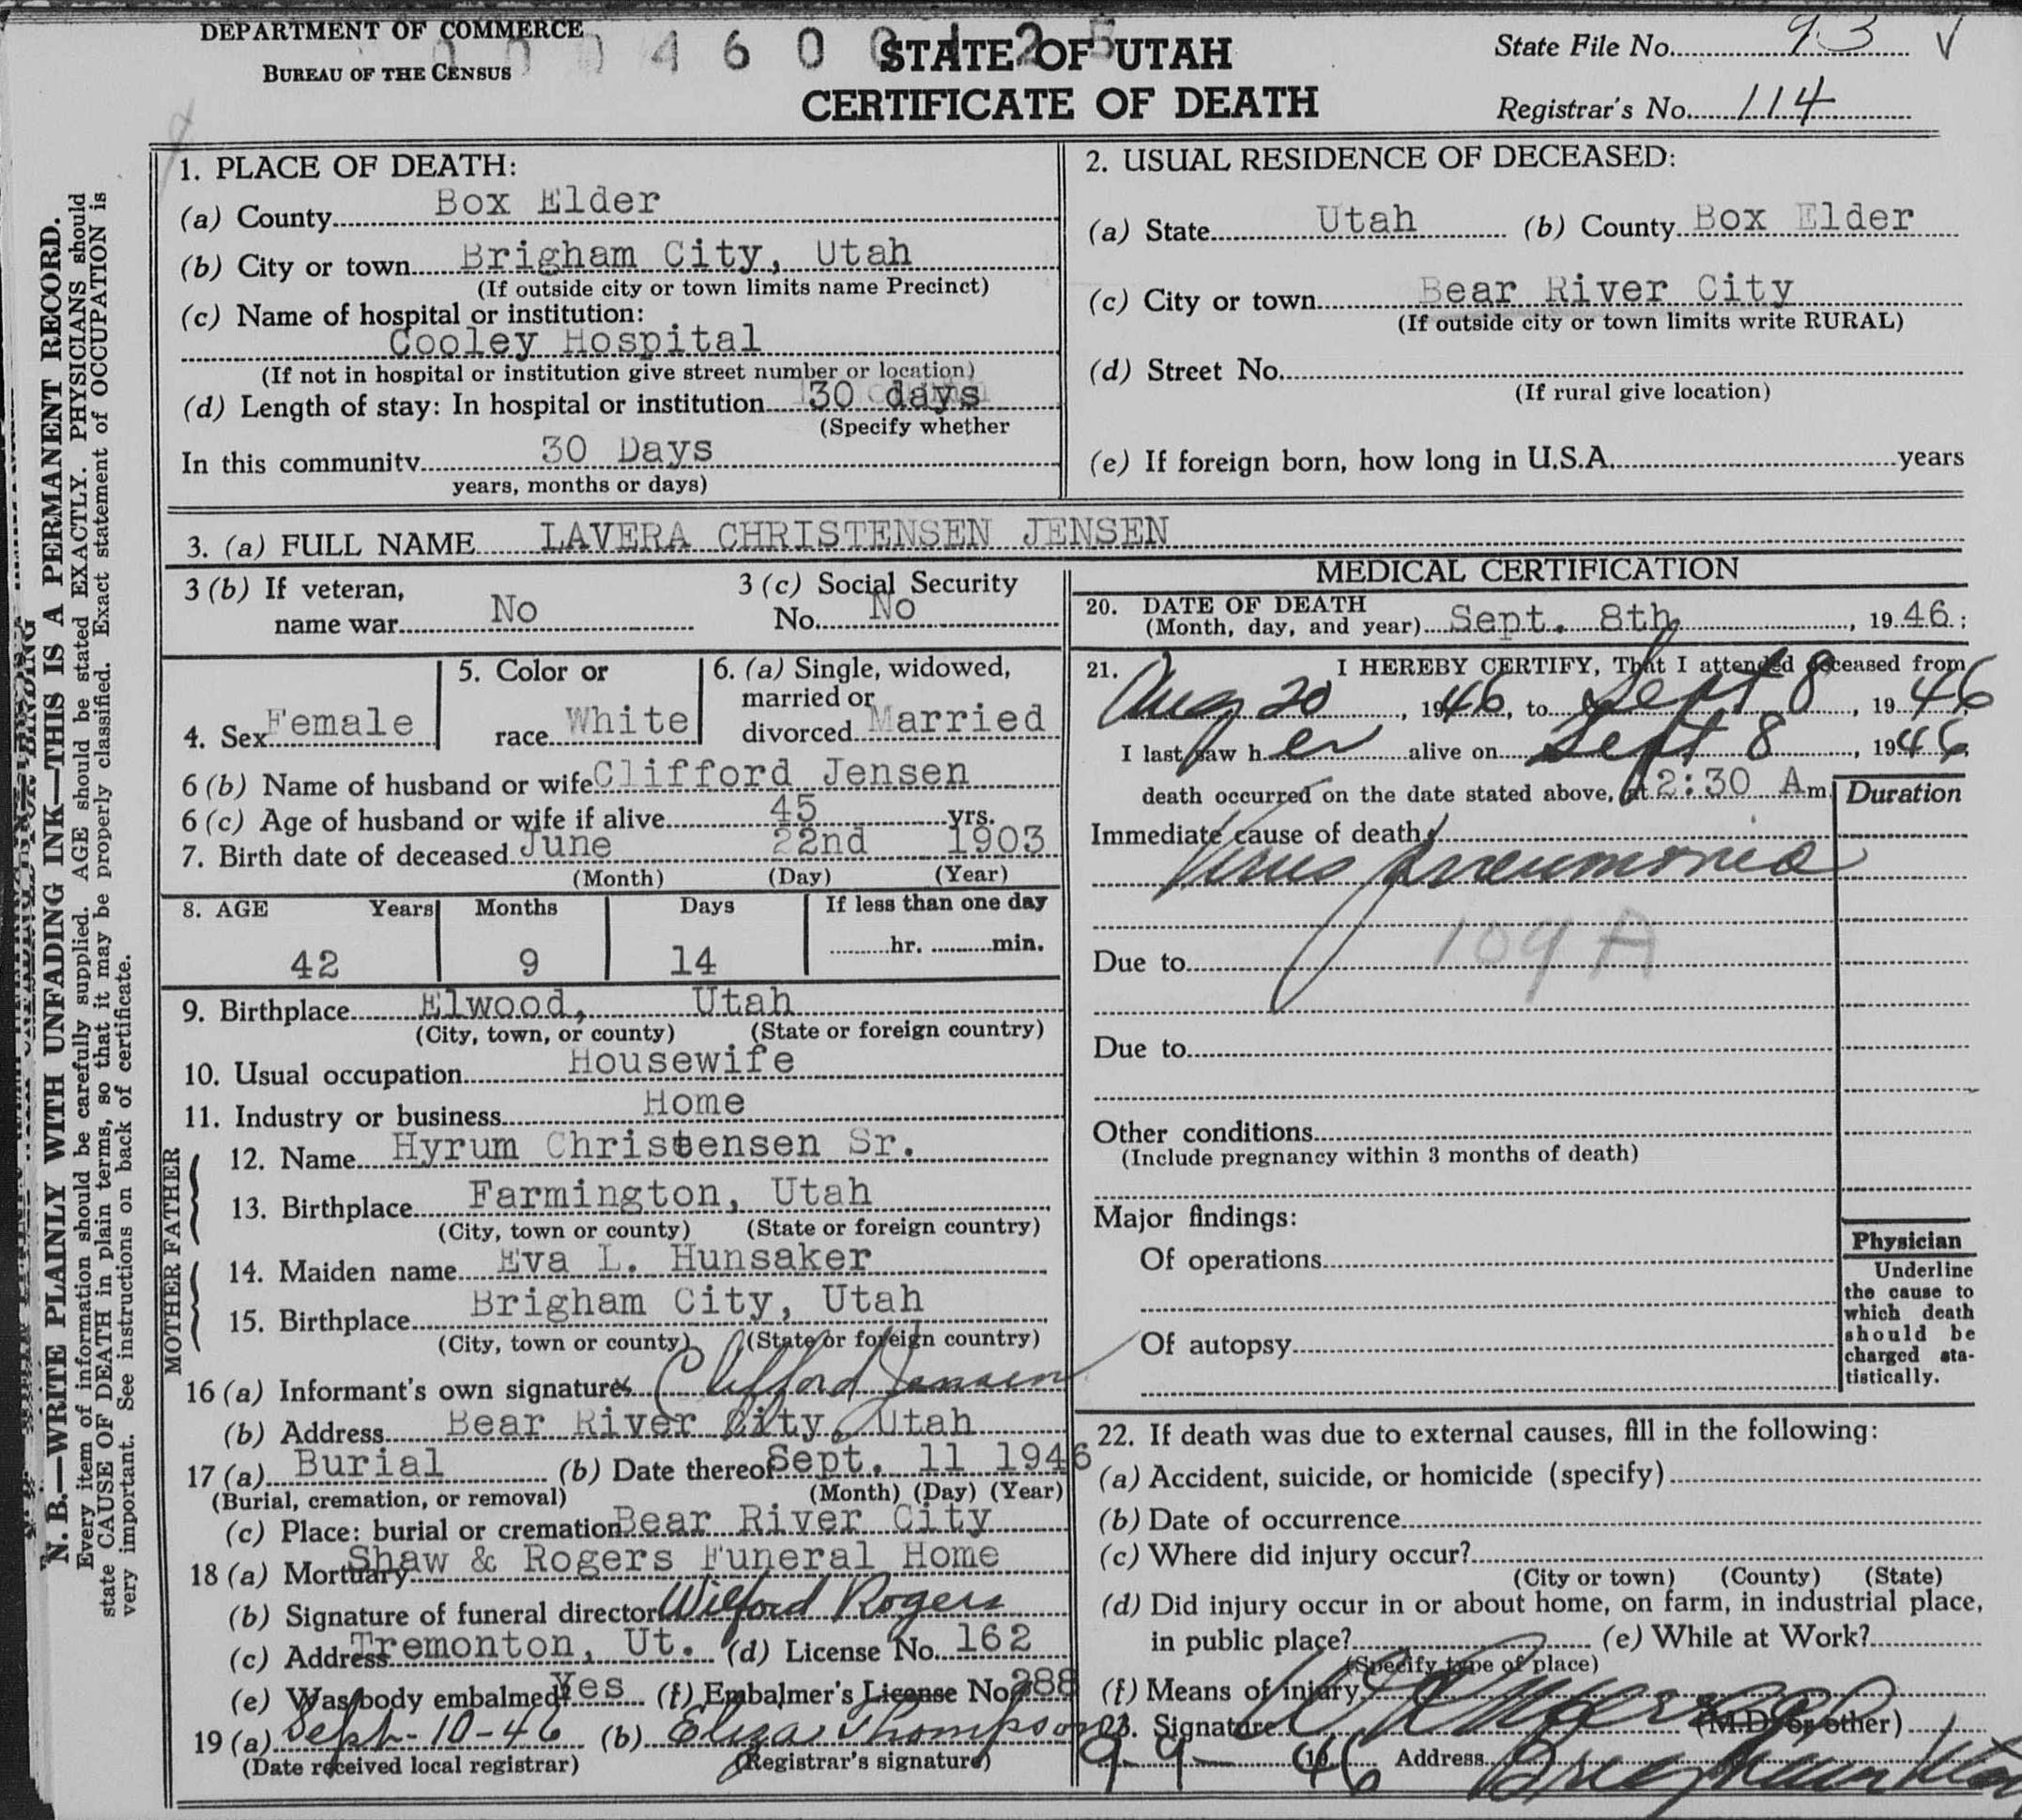 DEPARTMENT OF COMMERCE
BUREAU OF THE CENSUS
4 6 0 0 1 2 5
STATE OF UTAH
CERTIFICATE OF DEATH
State File No. 93 √
Registrar's No. 114
N. B.—WRITE PLAINLY WITH UNFADING INK—THIS IS A PERMANENT RECORD.
Every item of information should be carefully supplied. AGE should be stated EXACTLY. PHYSICIANS should
state CAUSE OF DEATH in plain terms, so that it may be properly classified. Exact statement of OCCUPATION is
very important. See instructions on back of certificate.
1. PLACE OF DEATH:
(a) County Box Elder
(b) City or town Brigham City, Utah
(If outside city or town limits name Precinct)
(c) Name of hospital or institution:
Cooley Hospital
(If not in hospital or institution give street number or location)
(d) Length of stay: In hospital or institution 30 days
(Specify whether
In this community 30 Days
years, months or days)
2. USUAL RESIDENCE OF DECEASED:
(a) State Utah (b) County Box Elder
(c) City or town Bear River City
(If outside city or town limits write RURAL)
(d) Street No.
(If rural give location)
(e) If foreign born, how long in U.S.A. years
3. (a) FULL NAME LAVERA CHRISTENSEN JENSEN
3 (b) If veteran,
name war No
3 (c) Social Security
No. No
4. Sex Female
5. Color or
race White
6. (a) Single, widowed,
married or
divorced Married
6 (b) Name of husband or wife Clifford Jensen
6 (c) Age of husband or wife if alive 45 yrs.
7. Birth date of deceased June 22nd 1903
(Month) (Day) (Year)
8. AGE Years Months Days If less than one day
42 9 14 hr. min.
9. Birthplace Elwood, Utah
(City, town, or county) (State or foreign country)
10. Usual occupation Housewife
11. Industry or business Home
FATHER
12. Name Hyrum Christensen Sr.
13. Birthplace Farmington, Utah
(City, town or county) (State or foreign country)
MOTHER
14. Maiden name Eva L. Hunsaker
15. Birthplace Brigham City, Utah
(City, town or county) (State or foreign country)
16 (a) Informant's own signature x Clifford Jensen
(b) Address Bear River City, Utah
17 (a) Burial (b) Date thereof Sept. 11 1946
(Burial, cremation, or removal) (Month) (Day) (Year)
(c) Place: burial or cremation Bear River City
18 (a) Mortuary Shaw & Rogers Funeral Home
(b) Signature of funeral director Wilford Rogers
(c) Address Tremonton, Ut. (d) License No. 162
(e) Was body embalmed? Yes (f) Embalmer's License No. 288
19 (a) Sept-10-46 (b) Eliza Thompson
(Date received local registrar) (Registrar's signature)
MEDICAL CERTIFICATION
20. DATE OF DEATH
(Month, day, and year) Sept. 8th, 1946;
21. I HEREBY CERTIFY, That I attended deceased from
Aug 20, 1946, to Sept 8, 1946,
I last saw her alive on Sept 8, 1946,
death occurred on the date stated above, at 2:30 A m. Duration
Immediate cause of death
Virus pneumonia
109 A
Due to
Due to
Other conditions
(Include pregnancy within 3 months of death)
Major findings:
Of operations
Of autopsy
Physician
Underline
the cause to
which death
should be
charged sta-
tistically.
22. If death was due to external causes, fill in the following:
(a) Accident, suicide, or homicide (specify)
(b) Date of occurrence
(c) Where did injury occur?
(City or town) (County) (State)
(d) Did injury occur in or about home, on farm, in industrial place,
in public place? (e) While at Work?
(Specify type of place)
(f) Means of injury
23. Signature (M.D. or other)
9-9- 1946 Address Brigham Utah